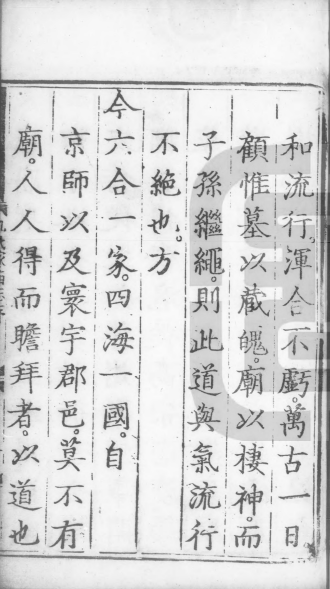 和流行。渾合不虧。萬古一日。
顧惟墓以蔵魄。廟以棲神。而
子孫繼繩。則此道與氣流行
不絶也。方
今六合一家。四海一國。自
京師以及寰宇郡邑。莫不有
廟。人人得而瞻拜者。以道也